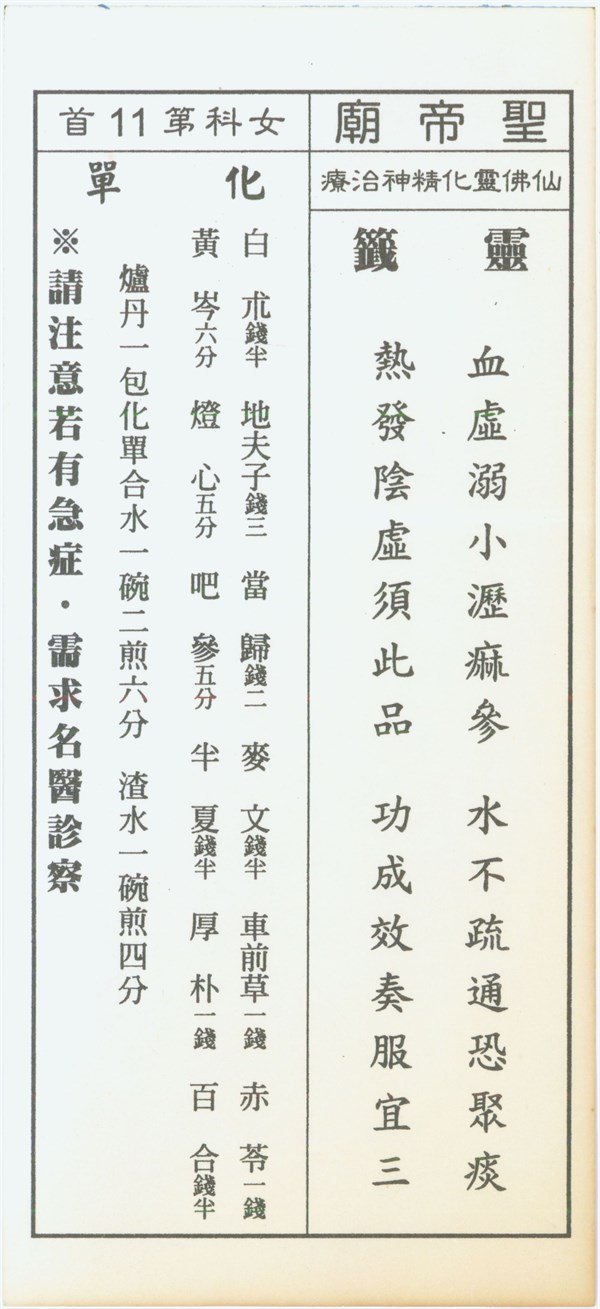 聖帝廟
仙佛靈化精神治療
靈籤
血虛溺小瀝痲參　水不疏通恐聚痰
熱發陰虛須此品　功成效奏服宜三
女科第11首
化單
白朮錢半　地夫子錢三　當歸錢二　麥文錢半　車前草一錢　赤苓一錢
黃岑六分　燈心五分　吧參五分　半夏錢半　厚朴一錢　百合錢半
爐丹一包化單合水一碗二煎六分　渣水一碗煎四分
※請注意若有急症．需求名醫診察